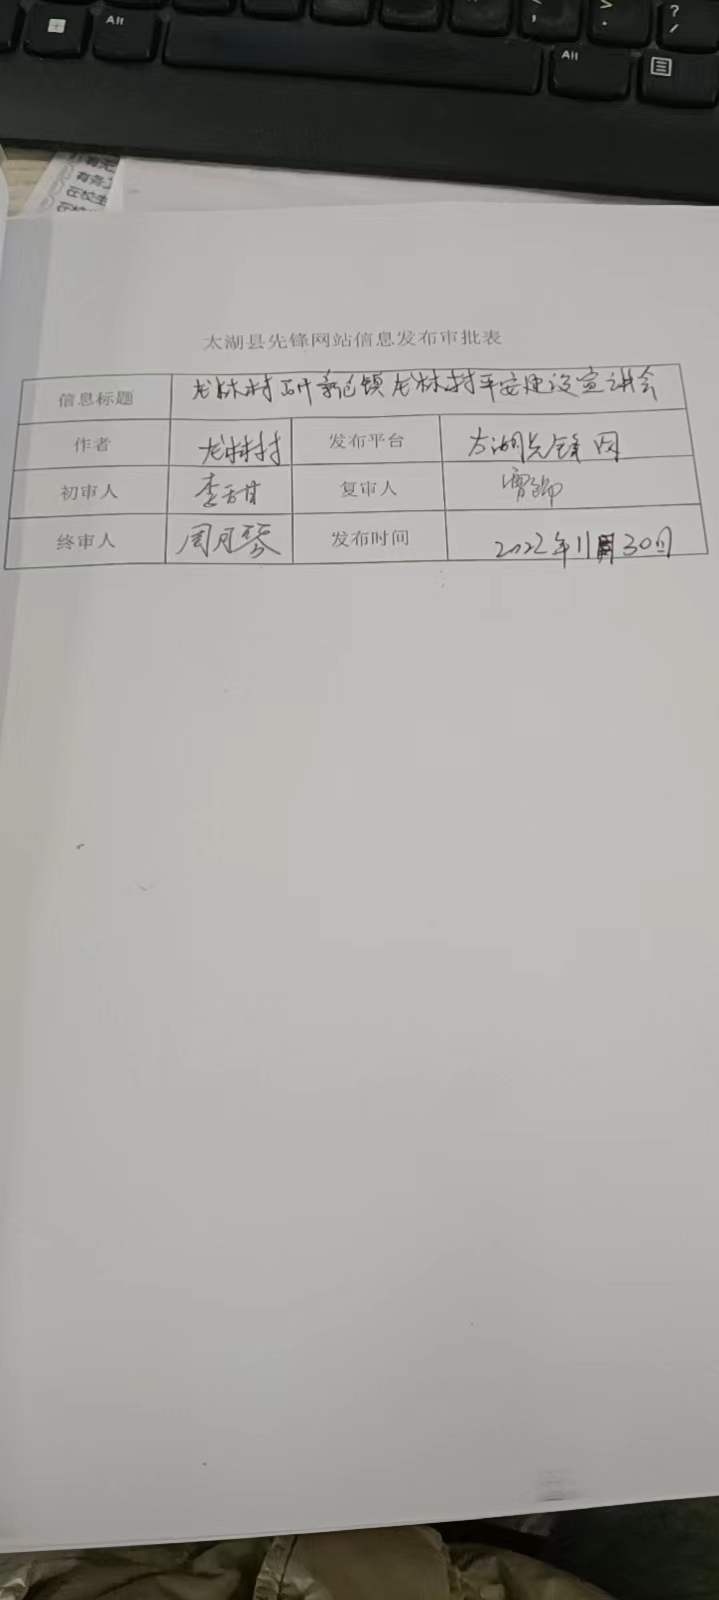 Alt
>
.
?
/
Alt
有务
在校生
太湖县先锋网站信息发布审批表
信息标题 龙林村 新仓镇龙林村平安建设宣讲会
作者 龙林村 发布平台 太湖先锋网
初审人 李甜甜 复审人
终审人 周月琴 发布时间 2022年11月30日